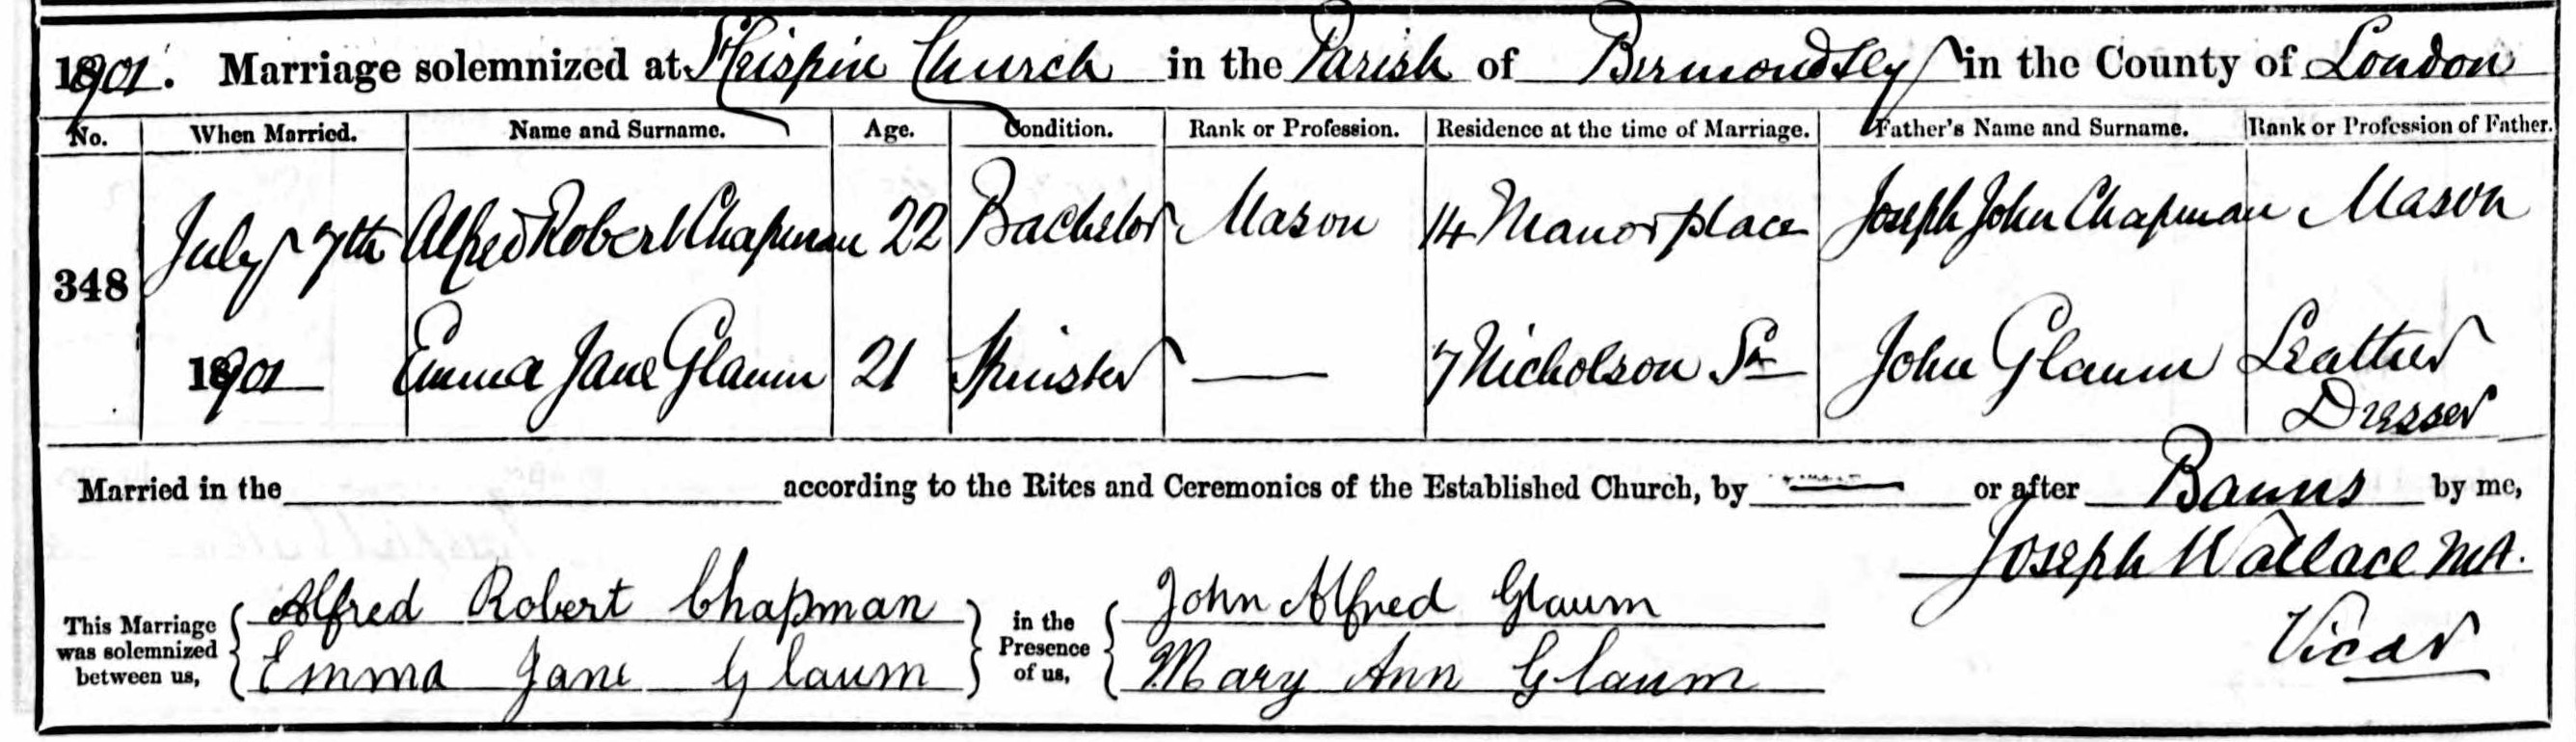 1901. Marriage solemnized at St Crispin Church in the Parish of Bermondsey in the County of London
No. When Married. Name and Surname. Age. Condition. Rank or Profession. Residence at the time of Marriage. Father's Name and Surname. Rank or Profession of Father.
348 July 7th Alfred Robert Chapman 22 Bachelor Mason 14 Manor place Joseph John Chapman Mason
1901 Emma Jane Glaum 21 Spinster — 7 Nicholson St John Glaum Leather
Dresser
Married in the according to the Rites and Ceremonies of the Established Church, by — or after Banns by me,
Joseph Wallace MA.
Vicar
This Marriage was solemnized between us, Alfred Robert Chapman in the Presence of us, John Alfred Glaum
Emma Jane Glaum Mary Ann Glaum